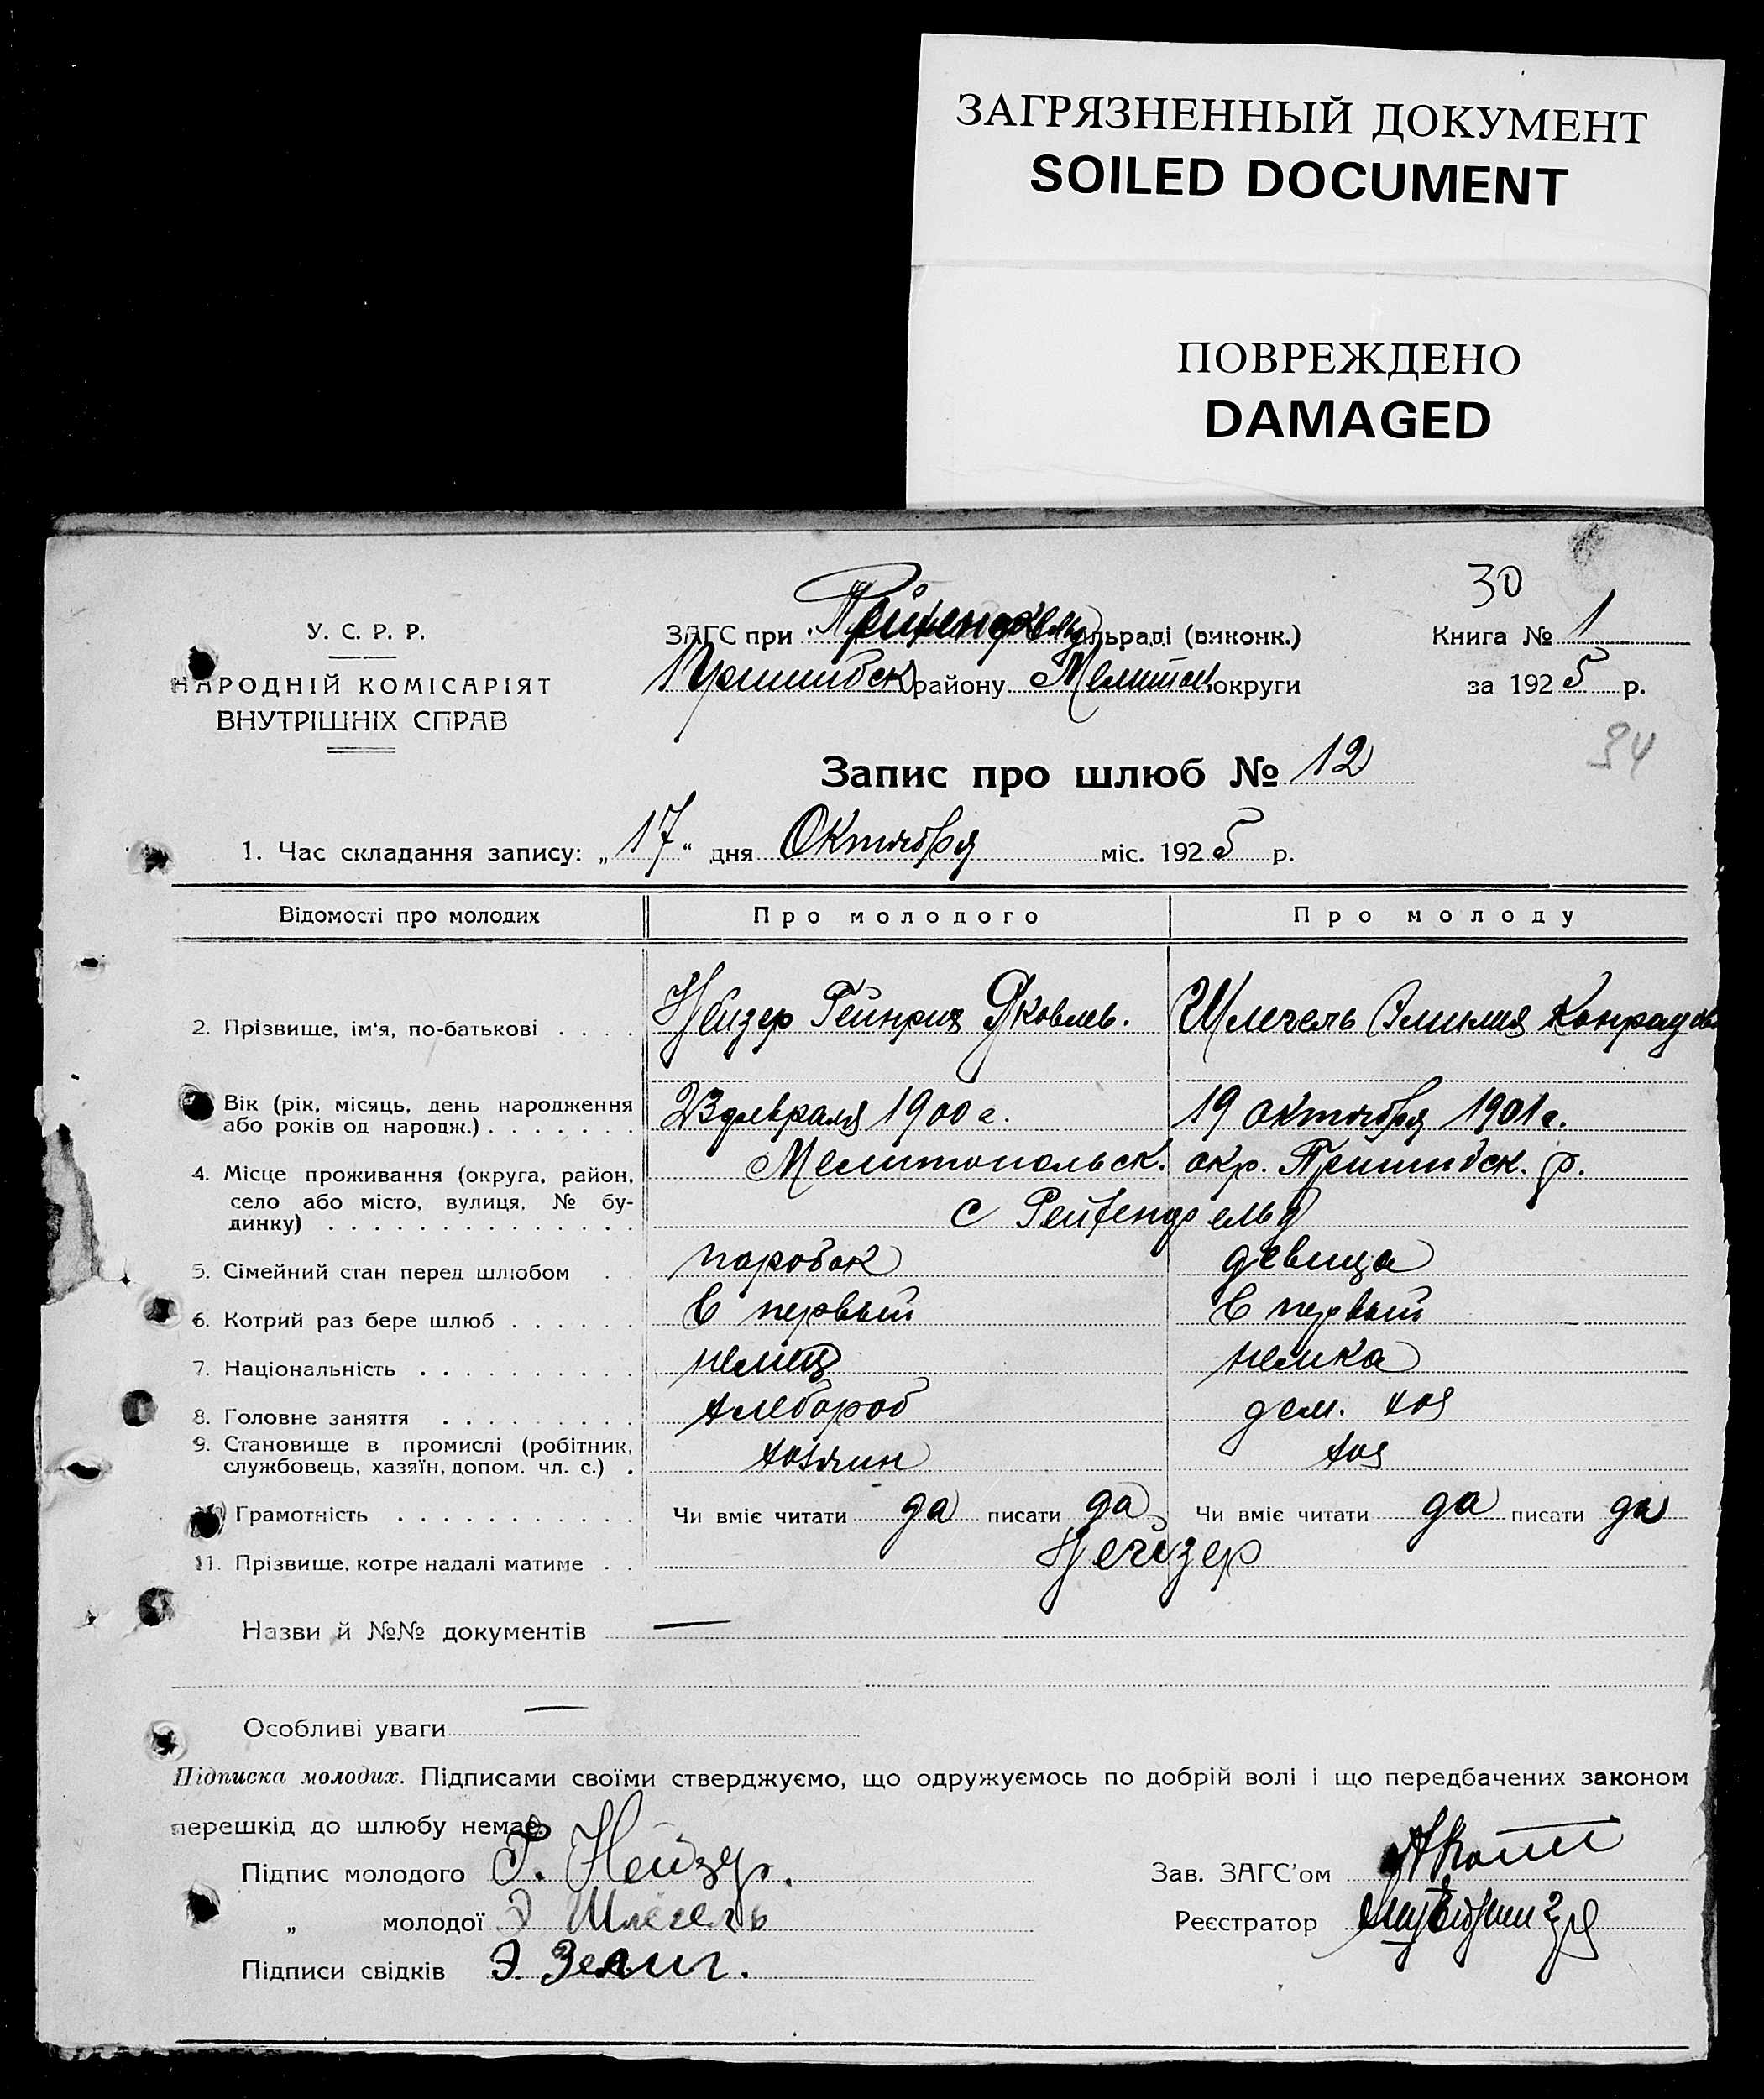 ЗАГРЯЗНЕННЫЙ ДОКУМЕНТ
SOILED DOCUMENT
ПОВРЕЖДЕНО
DAMAGED
30
У. С. Р. Р.
НАРОДНІЙ КОМІСАРІЯТ
ВНУТРІШНІХ СПРАВ
ЗАГС при Рейхенфельд сільраді (виконк.)
Пришибск району Мелитоп округи
Книга № 1
за 1925 р.
34
Запис про шлюб № 12
1. Час складання запису: „17“ дня Октября міс. 1925 р.
Відомості про молодих Про молодого Про молоду
2. Прізвище, ім'я, по-батькові . . . . Нейзер Гейнрих Яковлев. Шлегель Эмилия Конрадовн
Вік (рік, місяць, день народження
або років од народж.) . . . . . . . 23 февраля 1900 г. 19 октября 1901 г.
4. Місце проживання (округа, район, Мелитопольск. окр. Пришибск. р.
село або місто, вулиця, № бу-
динку) . . . . . . . . . . . . . . с Рейхенфельд
5. Сімейний стан перед шлюбом . . паробок девица
6. Котрий раз бере шлюб . . . . . . в первый в первый
7. Національність . . . . . . . . . . немец немка
8. Головне заняття . . . . . . . . . хлебороб дом. хоз
9. Становище в промислі (робітник,
службовець, хазяїн, допом. чл. с.) . хозяин хоз
10) Грамотність . . . . . . . . . . . Чи вміє читати да писати да Чи вміє читати да писати да
11. Прізвище, котре надалі матиме . . Нейзер
Назви й №№ документів —
Особливі уваги —
Підписка молодих. Підписами своїми стверджуємо, що одружуємось по добрій волі і що передбачених законом
перешкід до шлюбу немає.
Підпис молодого Г. Нейзер.
„ молодої Э Шлегель
Підписи свідків Э. Зелиг.
Зав. ЗАГС'ом
Реєстратор